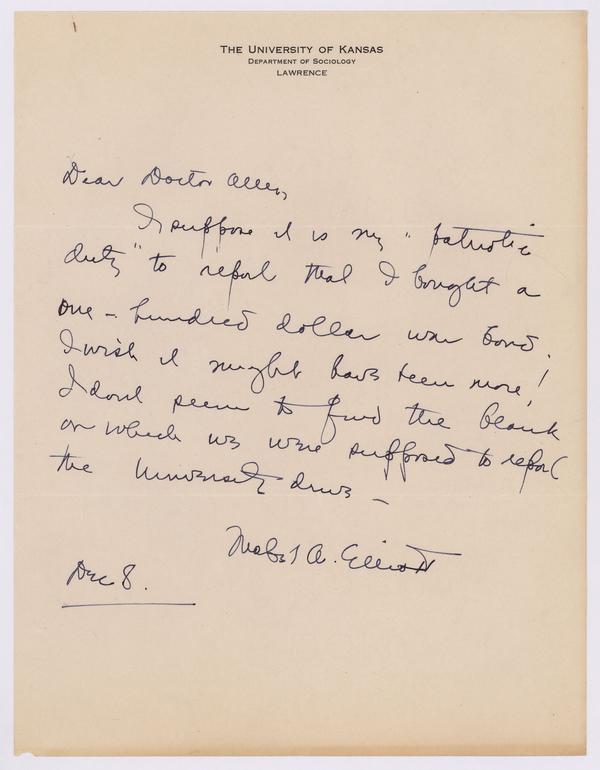 THE UNIVERSITY OF KANSAS
DEPARTMENT OF SOCIOLOGY
LAWRENCE
Dear Doctor Allen,
I suppose it is my "patriotic
duty" to report that I bought a
one-hundred dollar war bond.
I wish it might have been more!
I dont seem to find the blank
on which we were supposed to report
the University drive –
Mabel A. Elliott
Dec 8.